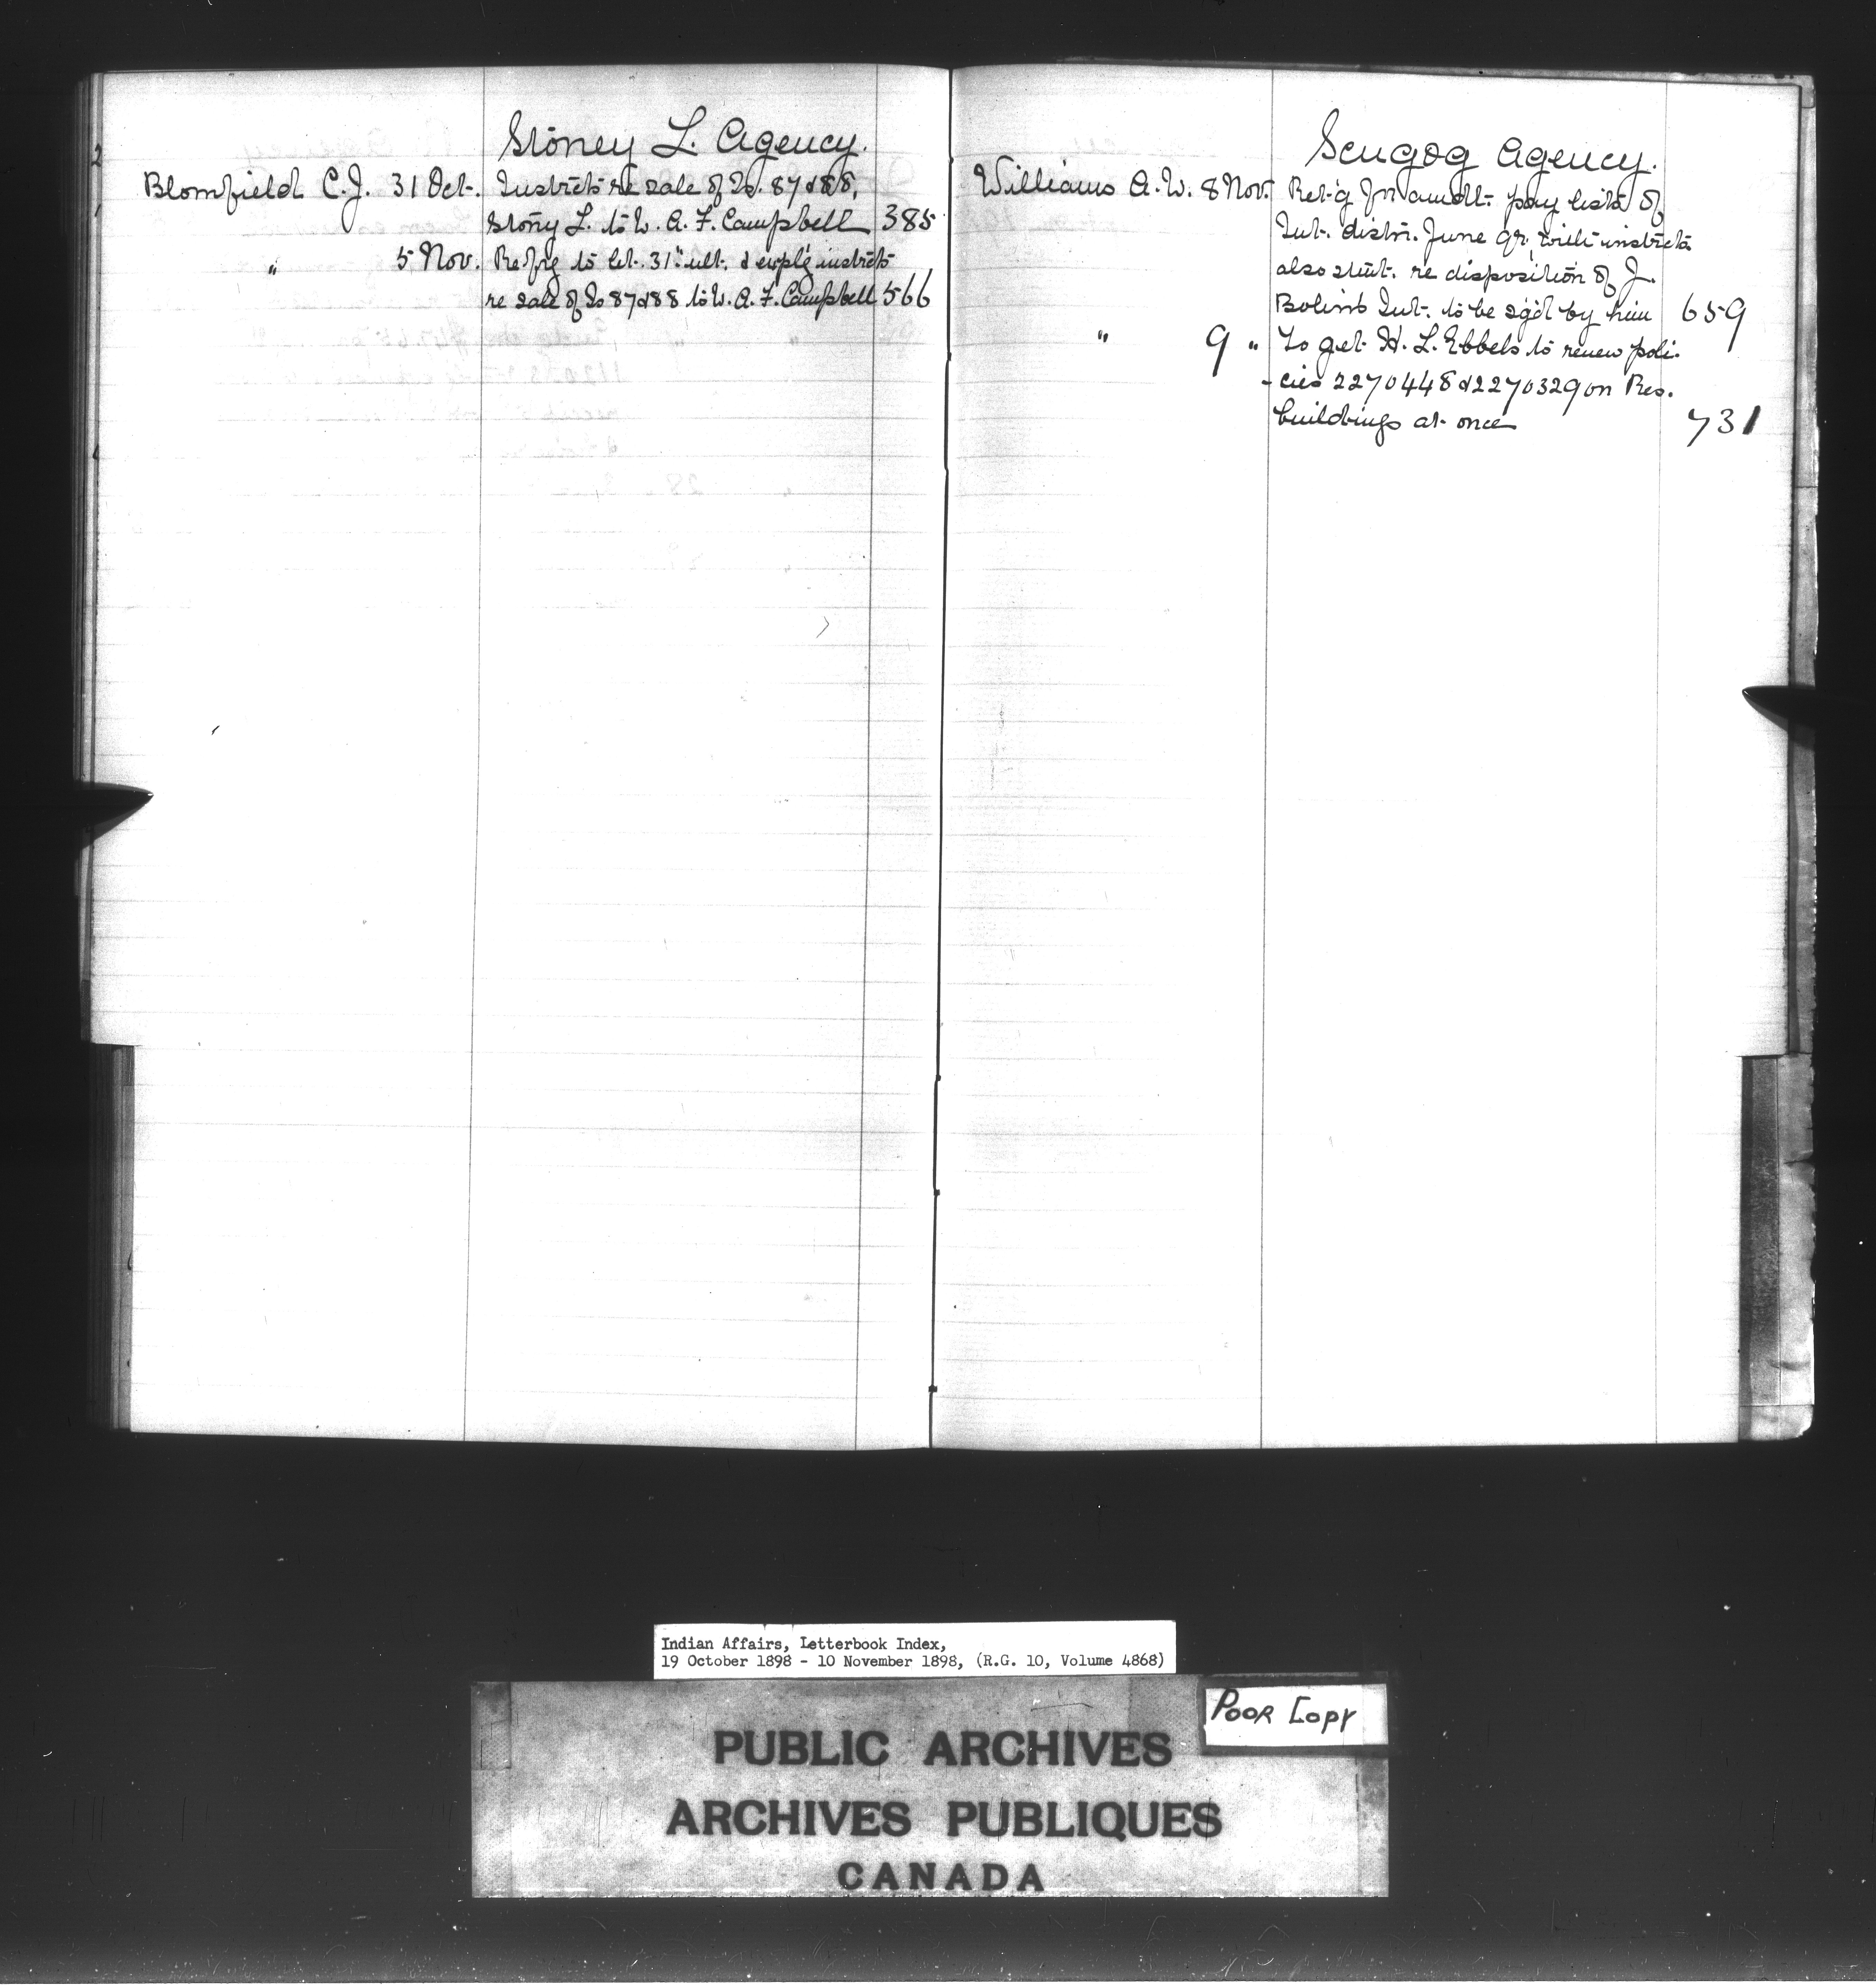 Stoney L. Agency.
Blomfield C.J. 31 Oct. Instrcts re sale of Is. 87 & 88,
Stony L. to W. A. F. Campbell 385
" 5 Nov. Refrg to let. 31st ult. & explg instrcts
re sale of Is 87 & 88 to W. A. F. Campbell 566
Scugog Agency.
Williams A.W. 8 Nov. Ret'g for amdt. pay lists of
Int. distn. June qr, with instrcts
also stmt. re disposition of J.
Bolin's Int. to be sg'd by him 659
" 9 " To get H. L. Ebbels to renew poli-
-cies 2270448 & 2270329 on Res.
buildings at once 731
Indian Affairs, Letterbook Index,
19 October 1898 - 10 November 1898, (R.G. 10, Volume 4868)
Poor Copy
PUBLIC ARCHIVES
ARCHIVES PUBLIQUES
CANADA